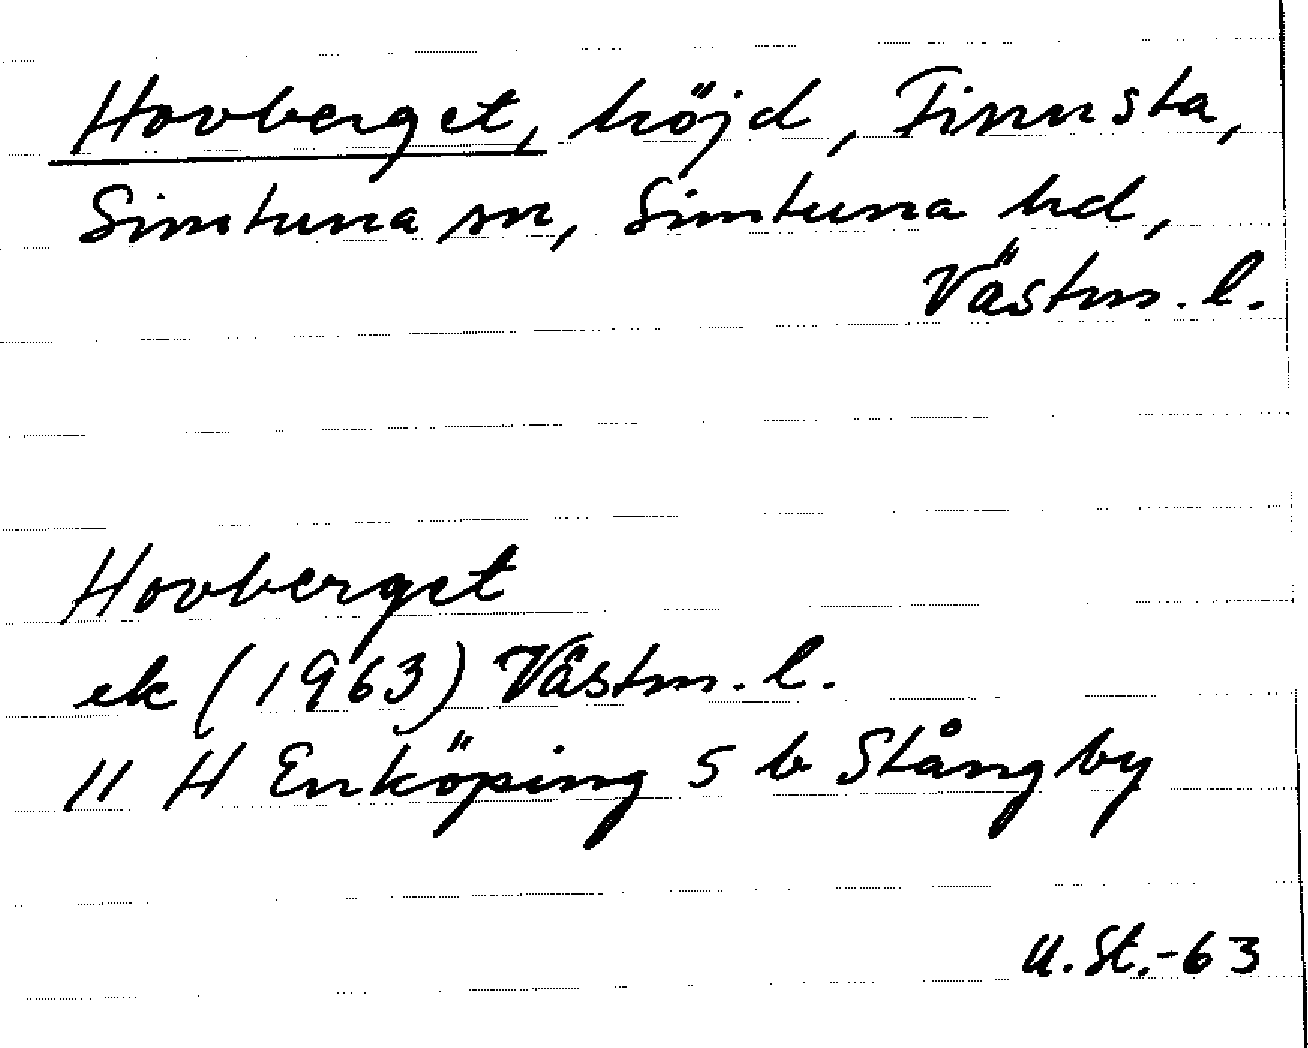 Hovberget, höjd, Finnsta,
Simtuna sn, Simtuna hd,
Västm. l.
Hovberget
ek (1963) Västm. l.
11 H Enköping 5 b Stångby
U. St.-63